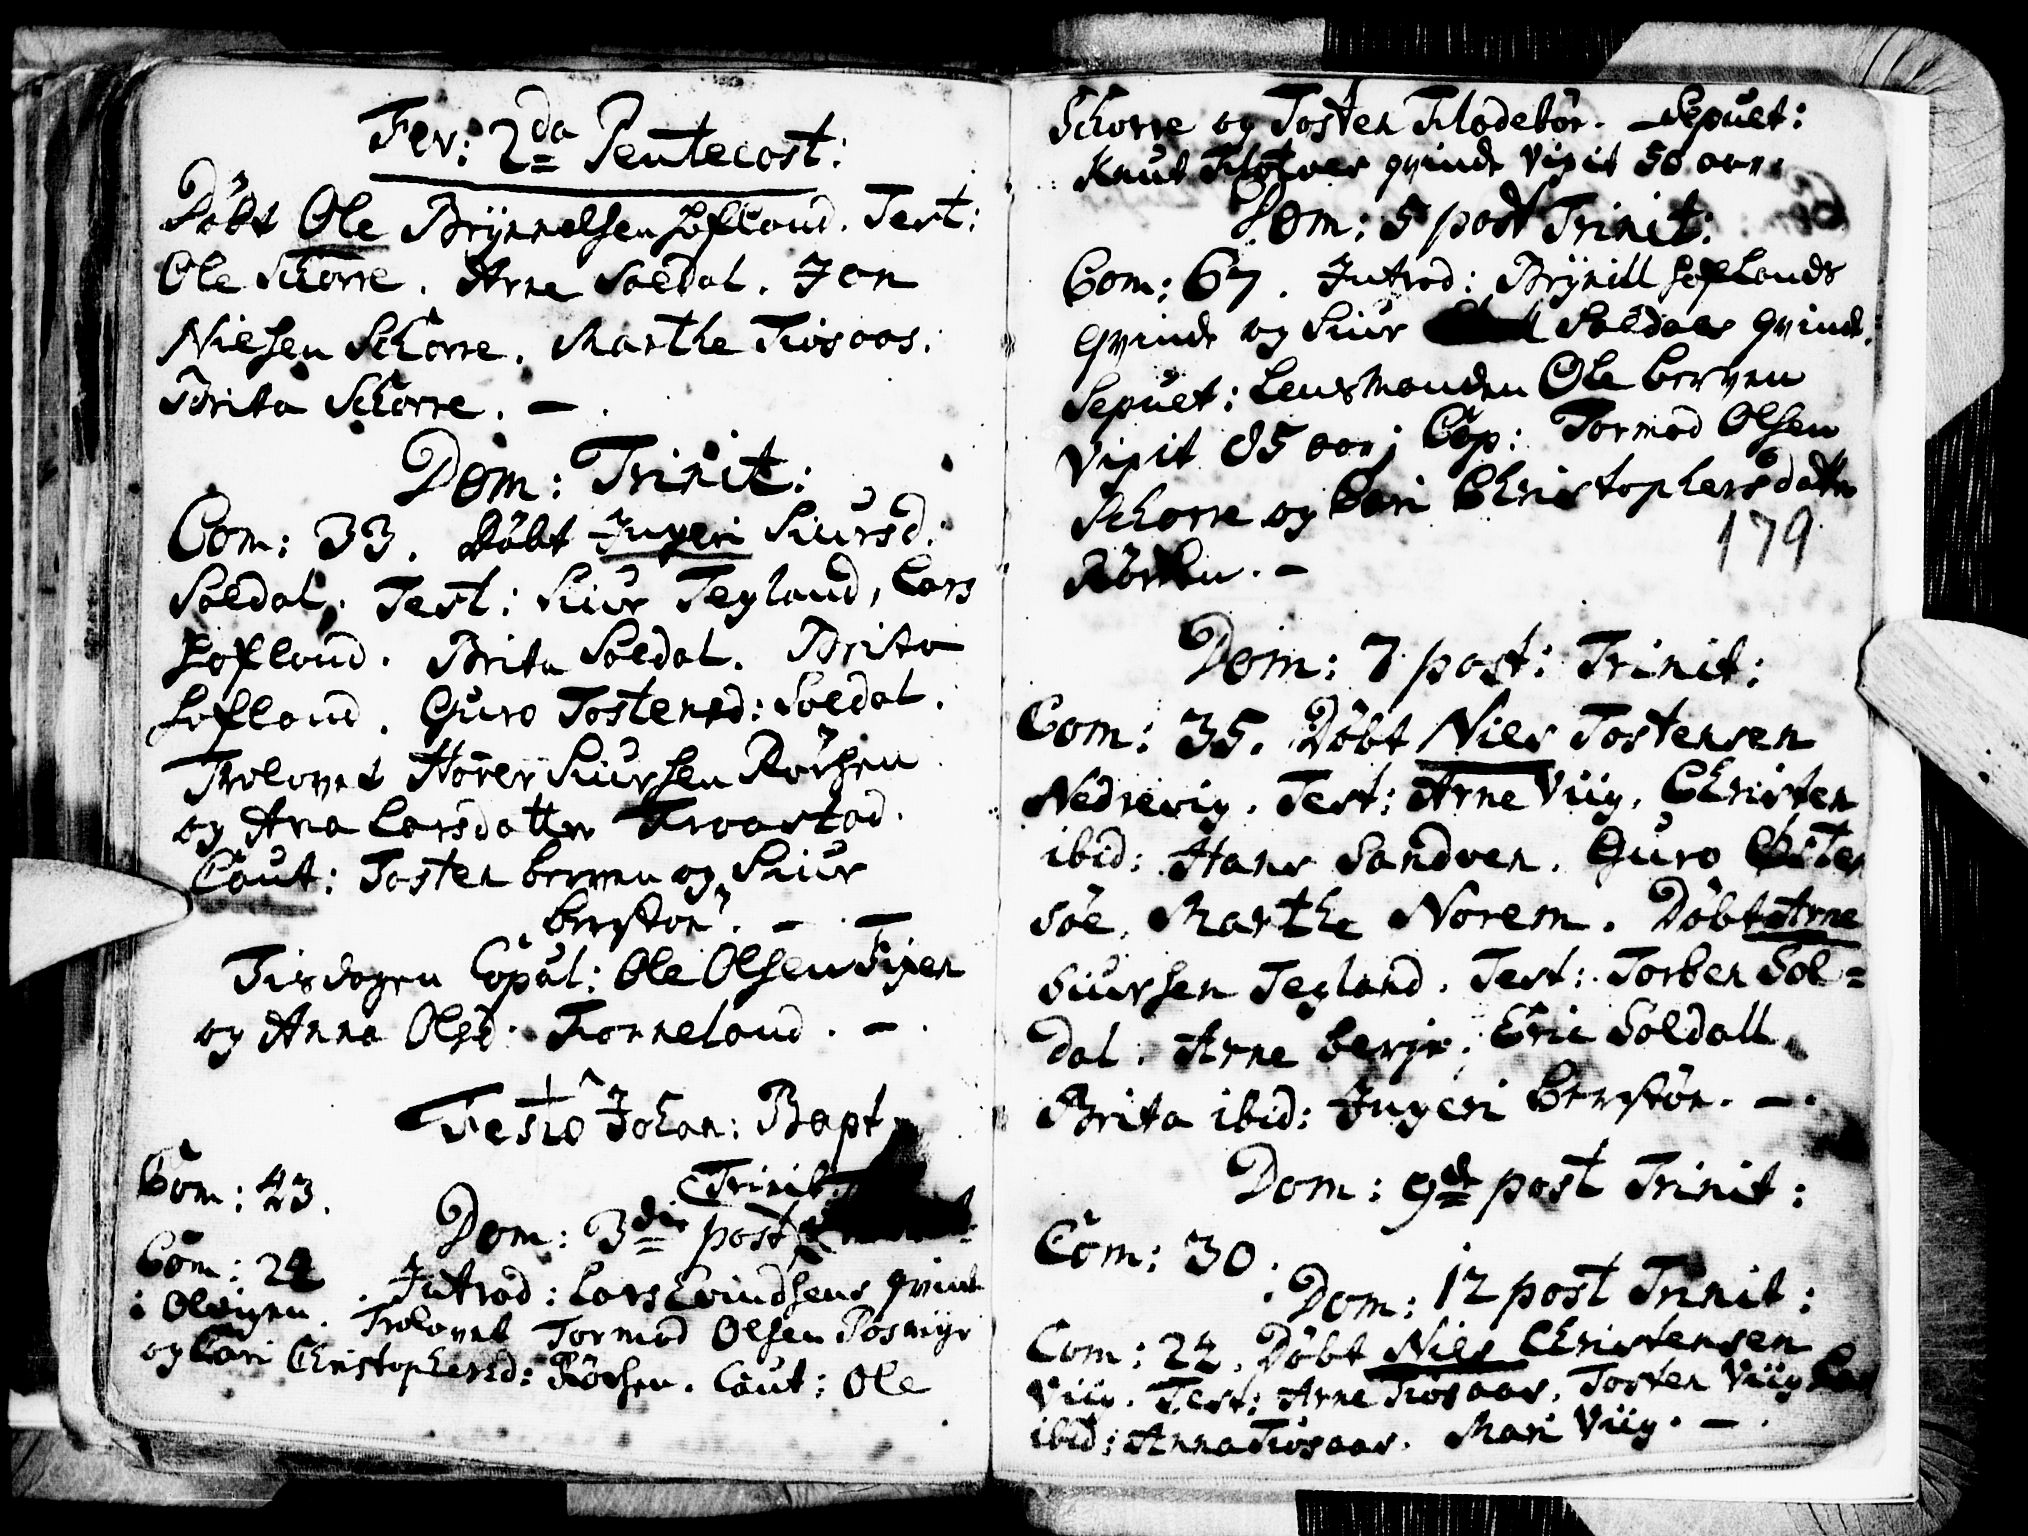 Fer: 2da Pentecost:
Döbt Ole Brÿnnelsen Lofloud. Test:
Ole Schorre. Arne Soldal. Jon
Nielsen Schorre. Marthe Tiosaas.
Brita Schorre. —.
Dom: Trinit:
Com: 33. Döbt Ingeri Siursd:
Soldal. Test: Siur Tegland, Lars
Lofloud. Brita Soldal. Brita
Lofloud. Guro Tostensd: Soldal.
Trolovet Siursen Rörhen
og Ana Larsdatter Traastad.
Caut: Tosten berven og Siur
berstön. —.
Tisdagen Copul: Ole Olsen Fixen
og Anna Olsd: Tonneland. —.
Festo Johan: Bapt
Com: 43.
Trinit:
Dom: 3die post
Com: 24. Introd: Lars Eindsens qvinde
i Olvigen. Trolovet Tormod Olsen
og Cari Christophersd: Rörhen. Caut: Ole
Schorre og Tosten Flodebön. Sepult:
Knut qvinde vixit 50 aar.
Dom: 5 post Trinit:
Com: 67. Introd: Brÿnill Loflouds
qvinde og Siur Soldals qvinde.
Sepult: Lensmanden Ole berven
vixit 85 aar; Cop: Tormod Olsen
Schorre og Cari Christophersdatter
179
Rörhen. —
Dom: 7 post: Trinit:
Com: 35. Döbt Niels Tostensen
Nedrevig. Test: Arne Viig. Christen
ibid: Hans Sandven. Guro
söe. Marthe Norem. Döbt Arne
Siursen Tegland. Test: Torben Sol=
dal. Arne berje; Eric Soldall.
Brita ibid: Ingeri berstön. —.
Dom: 9de post Trinit:
Com: 30.
Dom: 12 post Trinit:
Com: 22. Döbt Niels Christensen
Viig. Test: Arne Tiosaas. Tosten Viig
ibid: Anna Tiosaas. Mari Viig. —.